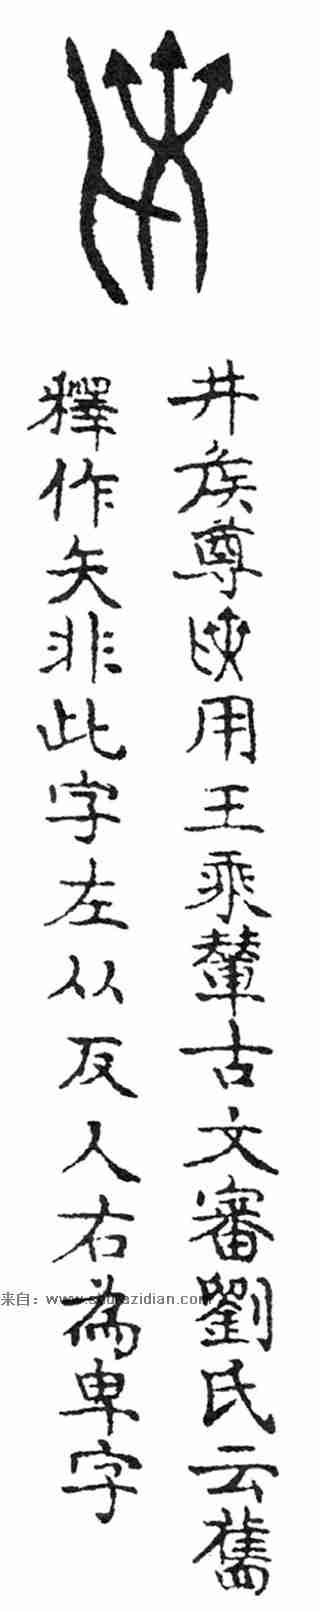 井矦尊用王乘輦古文審劉氏云舊
釋作矢非此字左从反人右為卑字
来自：www.shufazidian.com